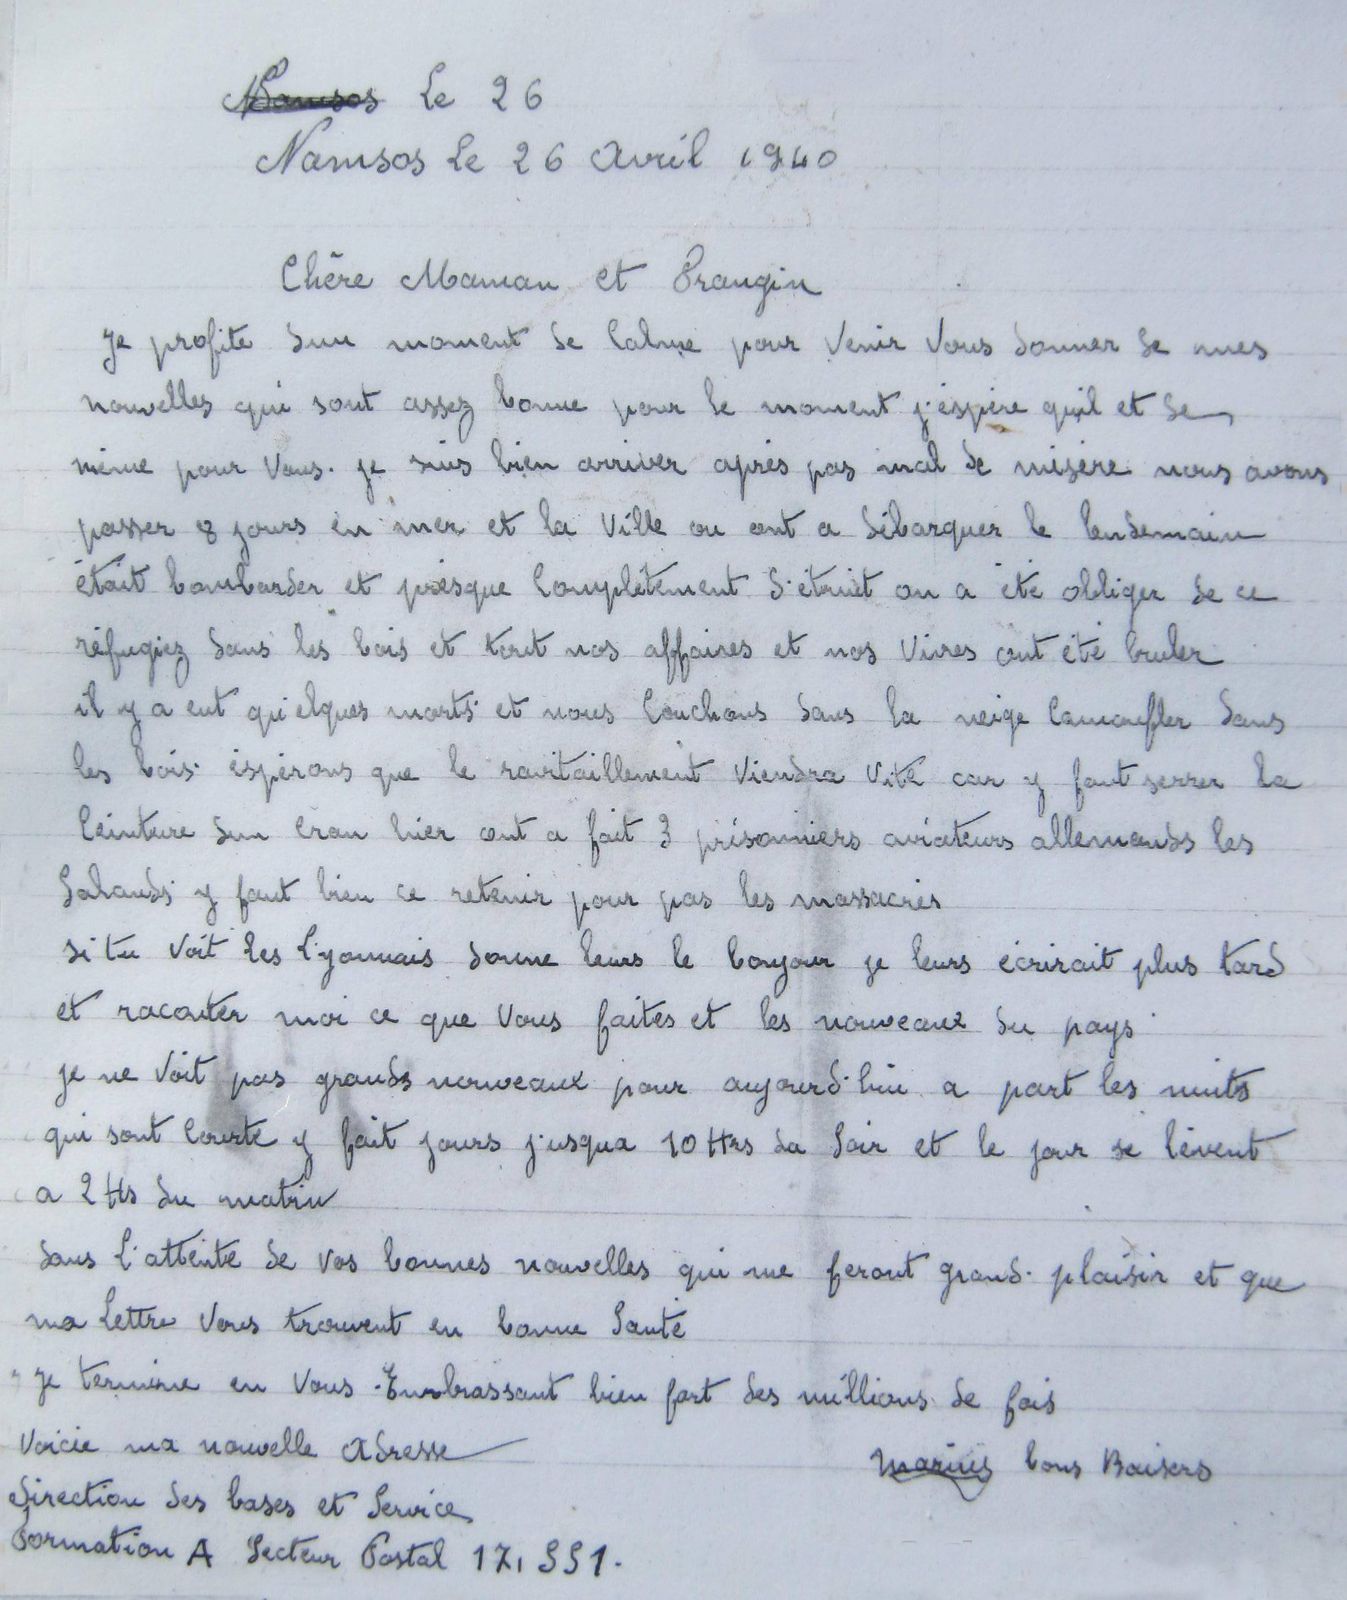 Namsos Le 26
Namsos Le 26 Avril 1940
Chère Maman et Frangin
Je profite dun moment de calme pour venir vous donner de mes
nouvelles qui sont assez bonne pour le moment j'éspère quil et de
même pour vous. je suis bien arriver après pas mal de misère nous avons
passer 8 jours en mer et la ville ou ont a débarquer le lendemain
était bombarder et présque complêtement d'étruit on a été obliger de ce
réfugiez dans les bois et tout nos affaires et nos vivres ont été bruler
il y a eut quelques morts et nous couchons dans la neige camoufler dans
les bois éspérons que le ravitaillement viendra vite car y faut serrer la
ceinture dun cran hier ont a fait 3 prisonniers aviateurs allemands les
salauds y faut bien ce retenir pour pas les massacrés
si tu voit les Lyonnais donne leurs le bonjour je leurs écrirait plus tard
et raconter moi ce que vous faites et les nouveaux du pays
je ne voit pas grands nouveaux pour aujourd'hui a part les nuits
qui sont courte y fait jours jusqua 10 Hrs du soir et le jour se lèvent
a 2 Hs du matin
dans l'attente de vos bonnes nouvelles qui me feront grand plaisir et que
ma lettre vous trouvent en bonne santé
Je termine en vous Embrassant bien fort des millions de fois
voicie ma nouvelle adresse
Marius bons Baisers
Direction des bases et Service
Formation A Secteur Postal 17,551.